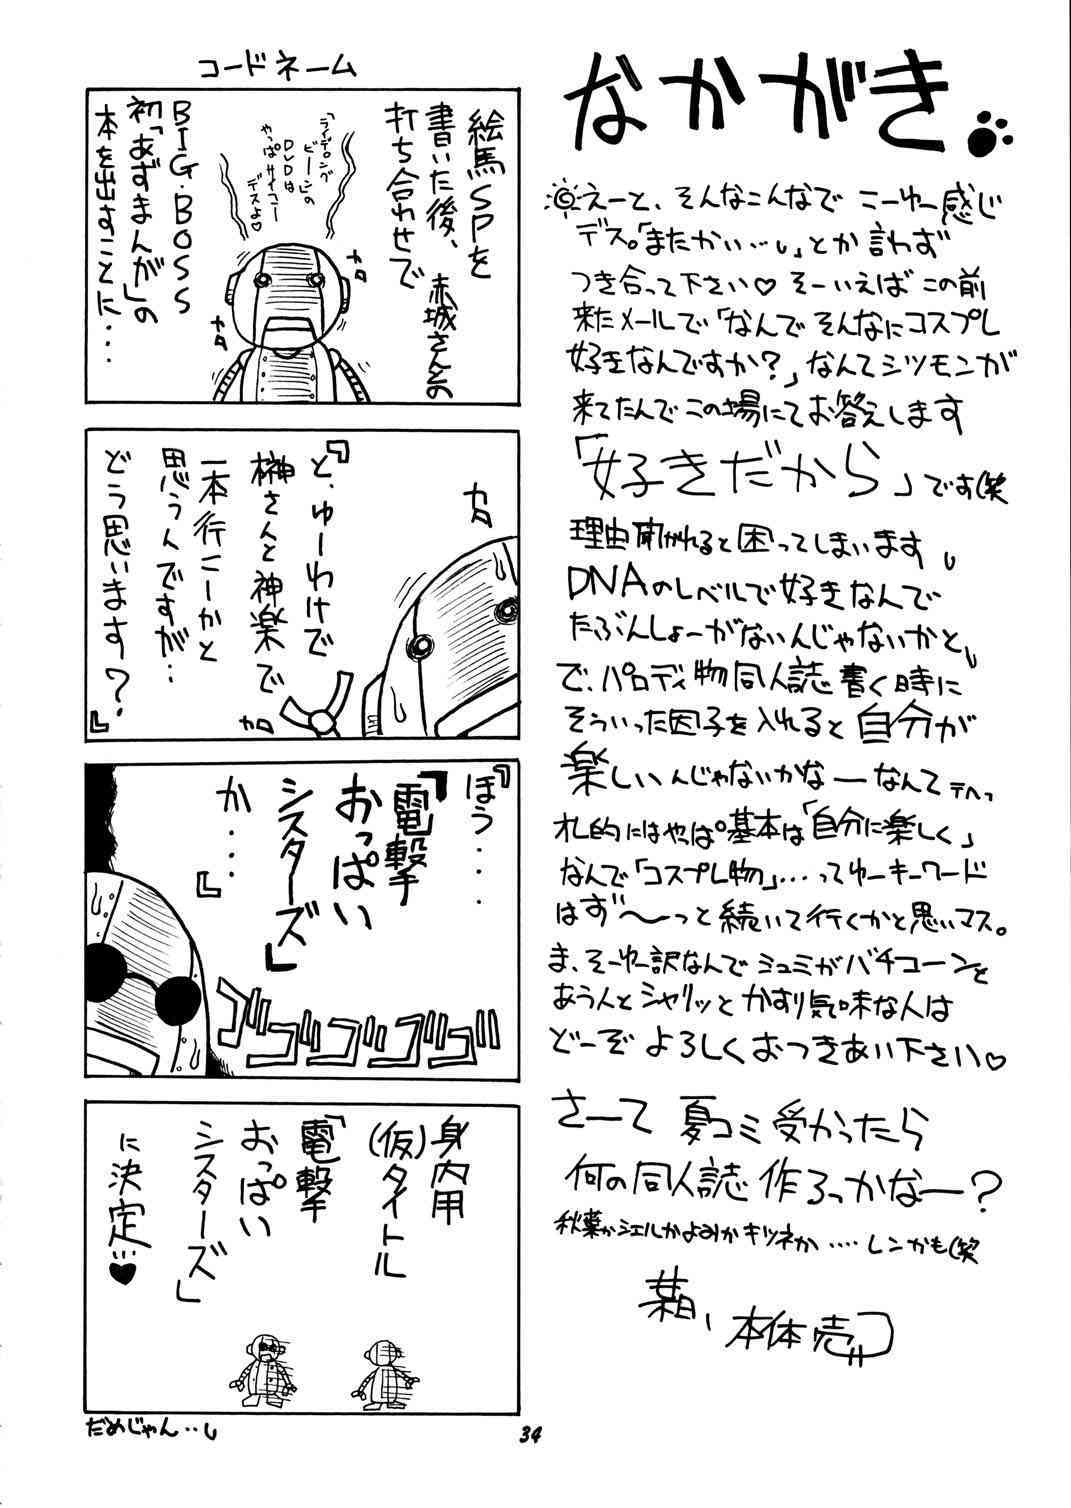 なかがき
えーと、そんなこんなで こーゆー感じ
デス。「またかい…」とか言わず
つき合って下さい♡ そーいえば この前
来たメールで「なんで そんなにコスプレ
好きなんですか?」なんてシツモンが
来てたんで この場にてお答えします
「好きだから」です(笑
理由聞かれると困ってしまいます
DNAのレベルで好きなんで
たぶんしょーがないんじゃないかと
で、パロディ物同人誌書く時に
そういった因子を入れると自分が
楽しいんじゃないかなーなんて
的にはやっぱ基本は「自分に楽しく」
なんで「コスプレ物」…ってゆーキーワード
はず〜っと続いて行くかと思いマス。
ま、そーゆー訳なんでシュミがバチコーンと
あう人とシャリッとかすり気味な人は
どーぞよろしくおつきあい下さい♡
さーて 夏コミ受かったら
何の同人誌作ろっかなー?
秋葉かシエルかよみかキツネか‥‥レンかも(笑
本体売
コードネーム
絵馬SPを
書いた後、赤城さんとの
打ち合わせで
「ライデロング
ビーン」の
DVDは
やっぱサイコー
デスよ♡
カタ
カタ
BIG・BOSS
初「あずまんが」の
本を出すことに・・・
『と、ゆーわけで
榊さんと神楽で
一本行こーかと
思うんですが…
どう思います?』
カタ
カタ
『ほう・・・・
「電撃
おっぱい
シスターズ」
か・・・』
ゴゴゴゴゴ
身内用
(仮)タイトル
「電撃
おっぱい
シスターズ」
に決定…♥
だめじゃん‥
34